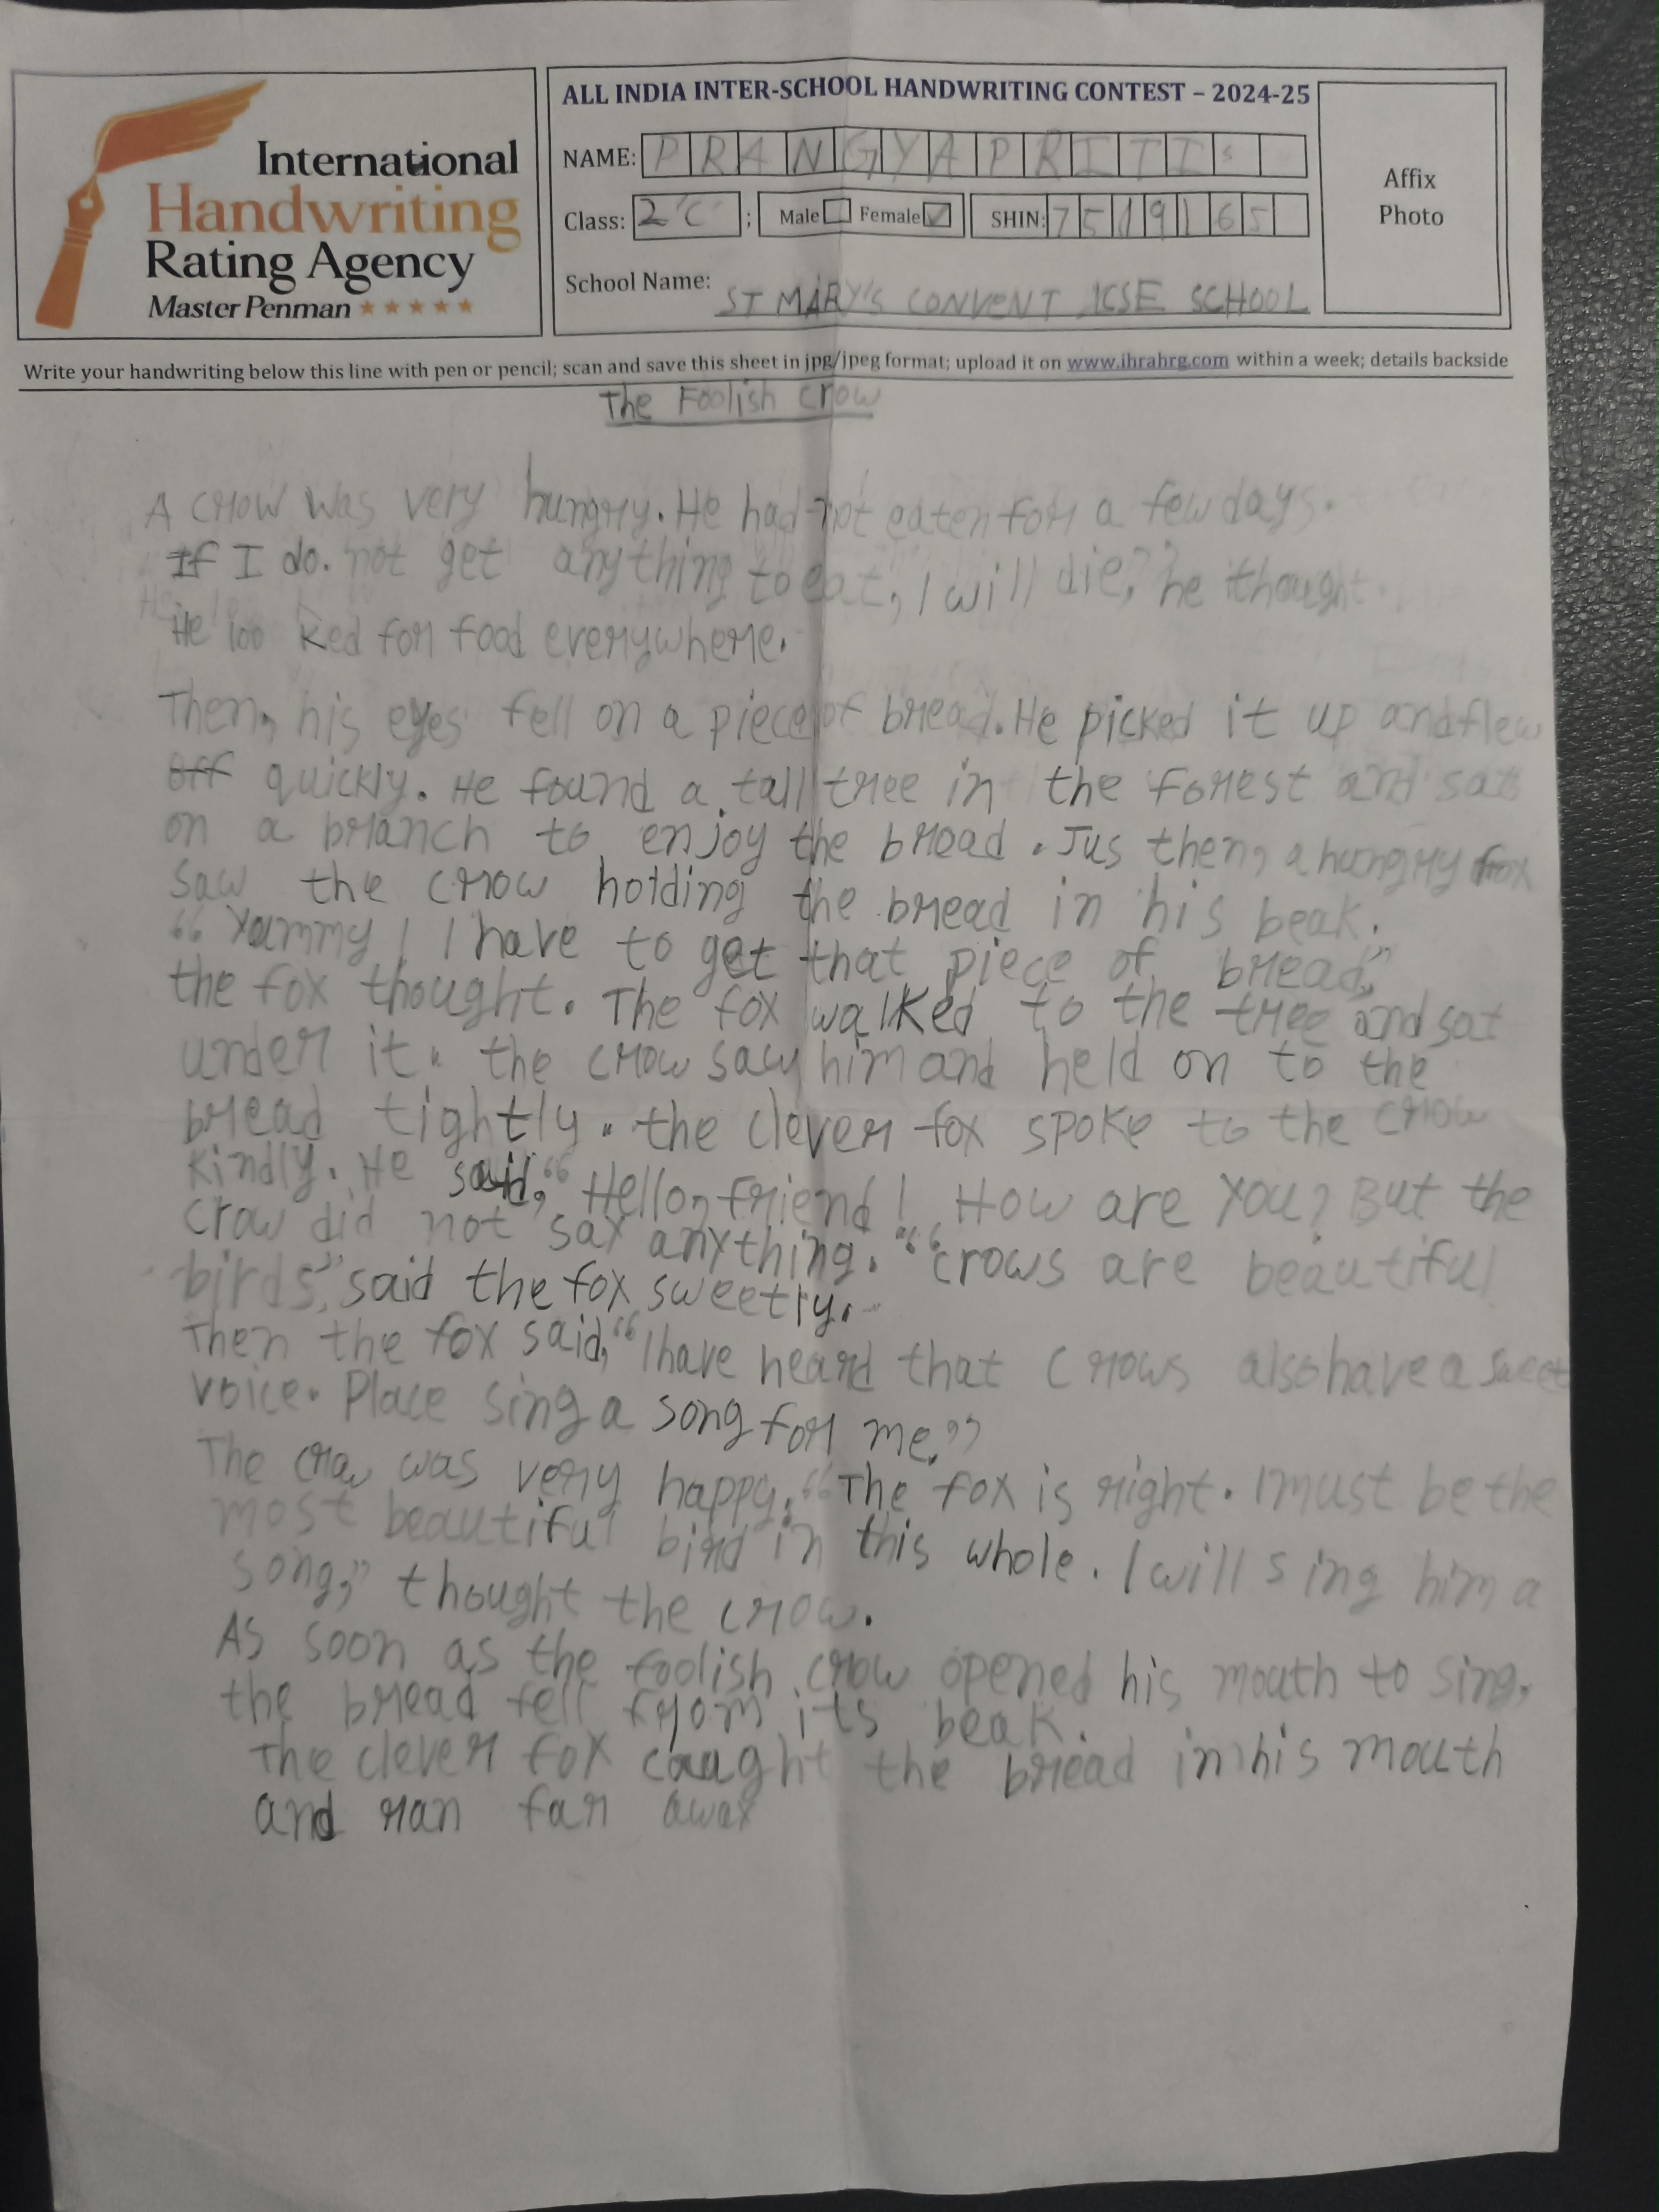 International
Handwriting
Rating Agency
Master Penman
ALL INDIA INTER-SCHOOL HANDWRITING CONTEST – 2024-25
NAME: PRANGYAPRITI
Class: 2 'C' ; Male Female SHIN: 7519165
School Name: ST MARY'S CONVENT ICSE SCHOOL
Affix
Photo
Write your handwriting below this line with pen or pencil; scan and save this sheet in jpg/jpeg format; upload it on www.ihrahrg.com within a week; details backside
The Foolish Crow
A crow was very hungry. He had not eaten for a few days.
If I do. not get anything to eat, I will die," he thought.
He loo ked for food everywhere.
Then, his eyes fell on a piece of bread. He picked it up and flew
off quickly. He found a tall tree in the forest and sat
on a branch to enjoy the bread. Jus then, a hungry fox
saw the crow holding the bread in his beak.
“Yammy! I have to get that piece of bread,”
the fox thought. The fox walked to the tree and sat
under it. the crow saw him and held on to the
bread tightly. the clever fox spoke to the crow
kindly. He said, “Hello, friend! How are you? But the
crow did not say anything. “crows are beautiful
birds,” said the fox sweetly.
Then the fox said, “I have heard that crows also have a sweet
voice. Place sing a song for me.”
The crow was very happy. “The fox is right. I must be the
most beautiful bird in this whole. I will sing him a
song,” thought the crow.
As soon as the foolish crow opened his mouth to sing,
the bread fell from its beak.
The clever fox caught the bread in his mouth
and ran far away